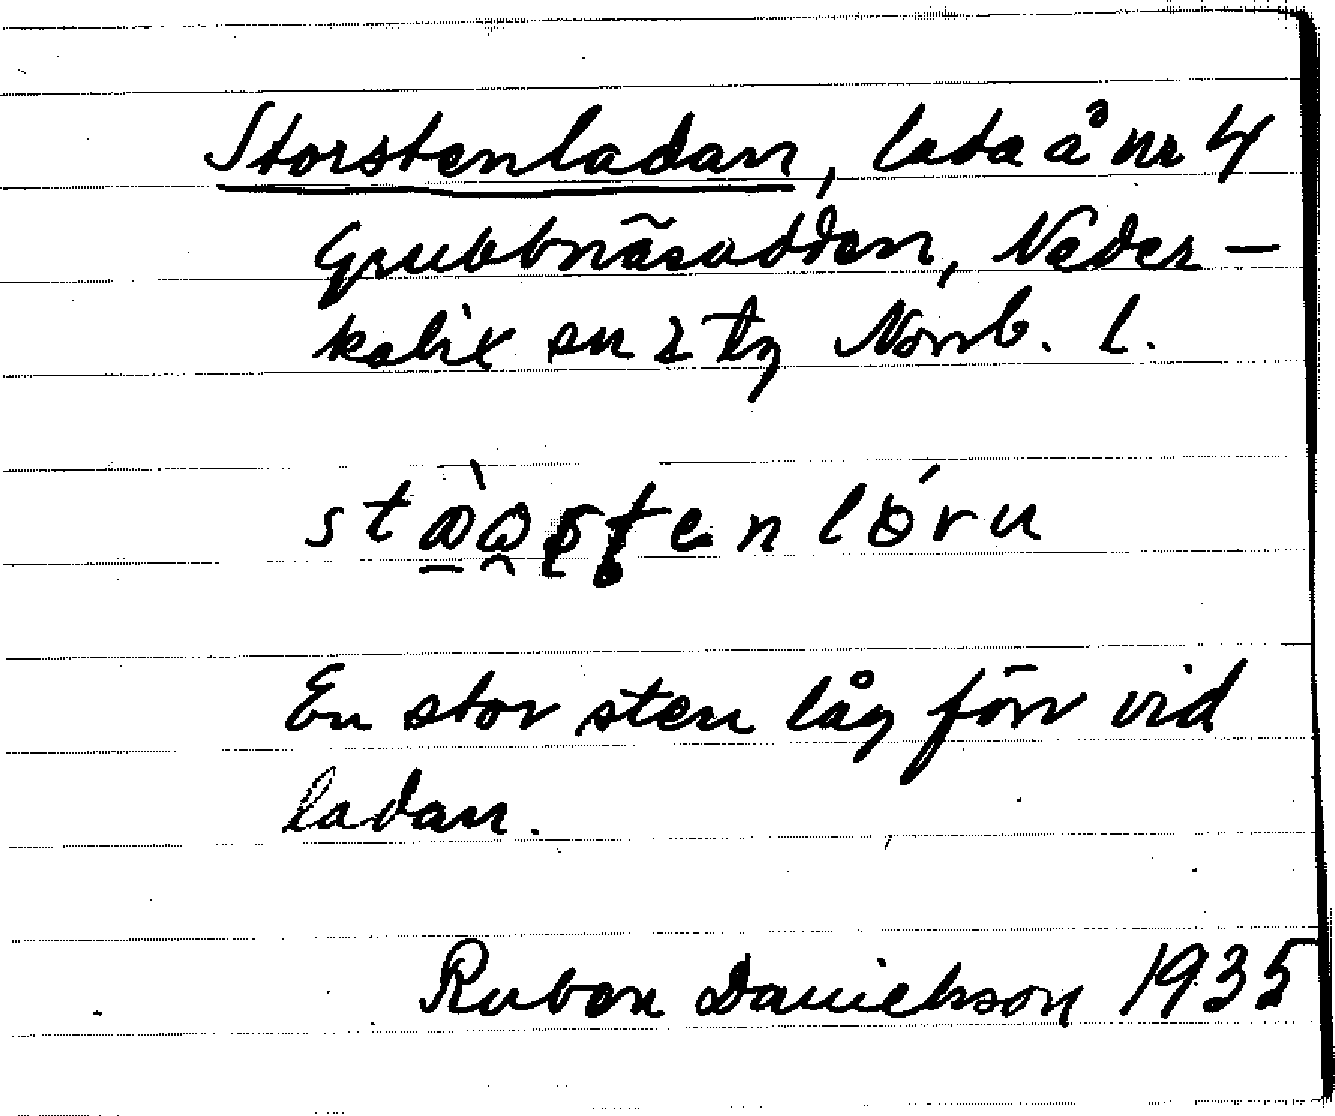 Storstenladan, lada å nr 4
Grubbnäsudden, Neder-
kalix sn o tg Norrb. l.
En stor sten låg förr vid
ladan.
Ruben Danielsson 1935